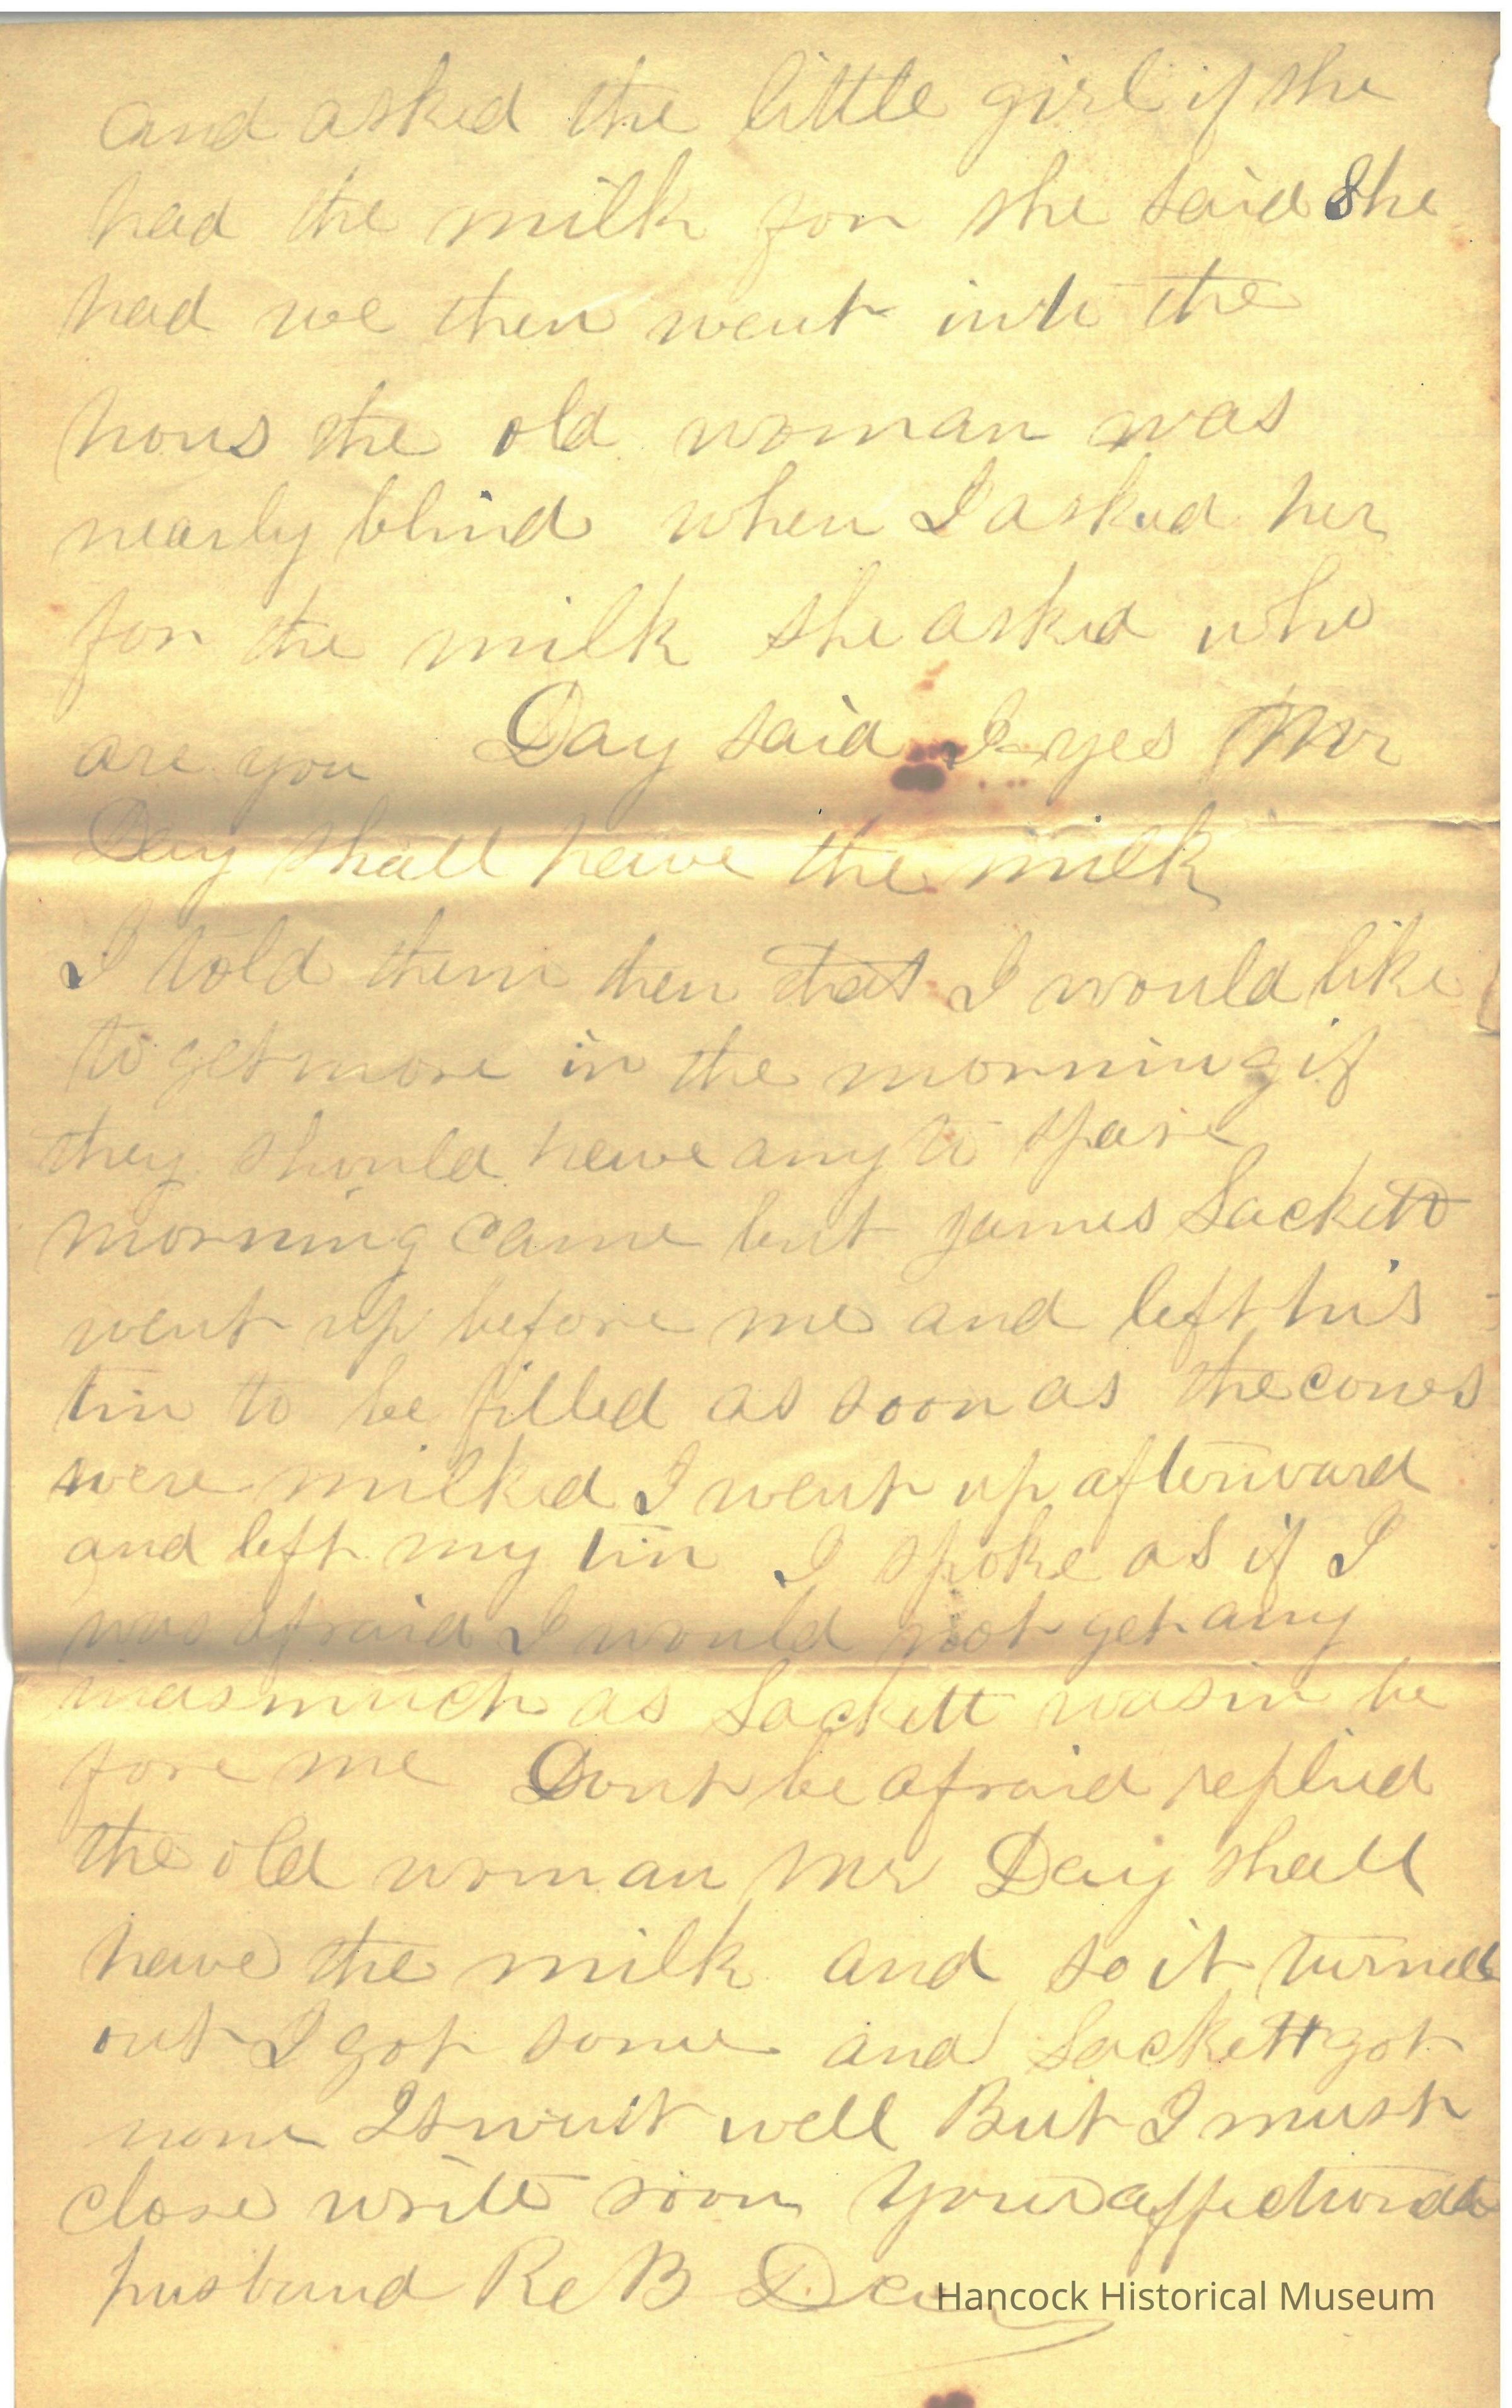 and asked the little girl if she
had the milk for she said She
had we then went into the
hous the old woman was
nearly blind when I asked her
for the milk she asked who
are you Day said I yes Mr
Day shall have the milk
I told them then that I would like
to get more in the morning if
they should have any to spare
morning came but James Sackett
went up before me and left his
tin to be filled as soon as the cows
were milked I went up afterward
and left my tin I spoke as if I
was afraid I would not get any
inasmuch as Sackett was in be
fore me Dont be afraid replied
the old woman Mr Day shall
have the milk and so it turned
out I got some and Sackett got
none It went well But I must
close write soon Your affectionate
husband B Day
Hancock Historical Museum